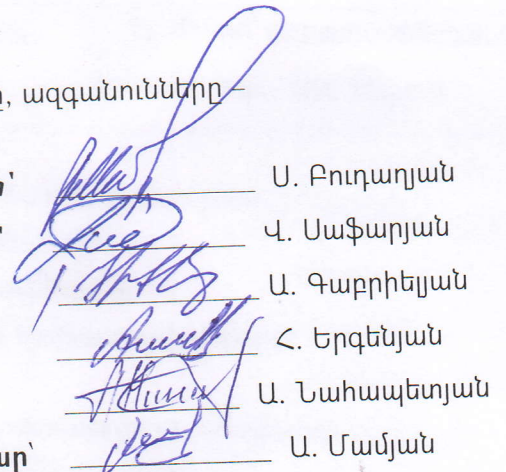 ազգանունները
Ս. Բուդաղյան
Վ. Սաֆարյան
Ա. Գաբրիելյան
Հ. Երգենյան
Ա. Նահապետյան
Ա. Մամյան